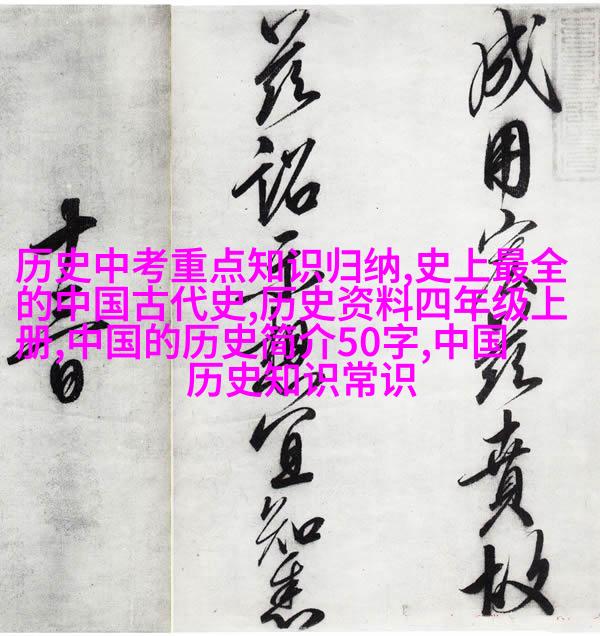 历史中考重点知识归纳,史上最全
的中国古代史,历史资料四年级上
册,中国的历史简介50字,中国
历史知识常识
成用宏兹賁故
兹詔示想宜知悉
十日